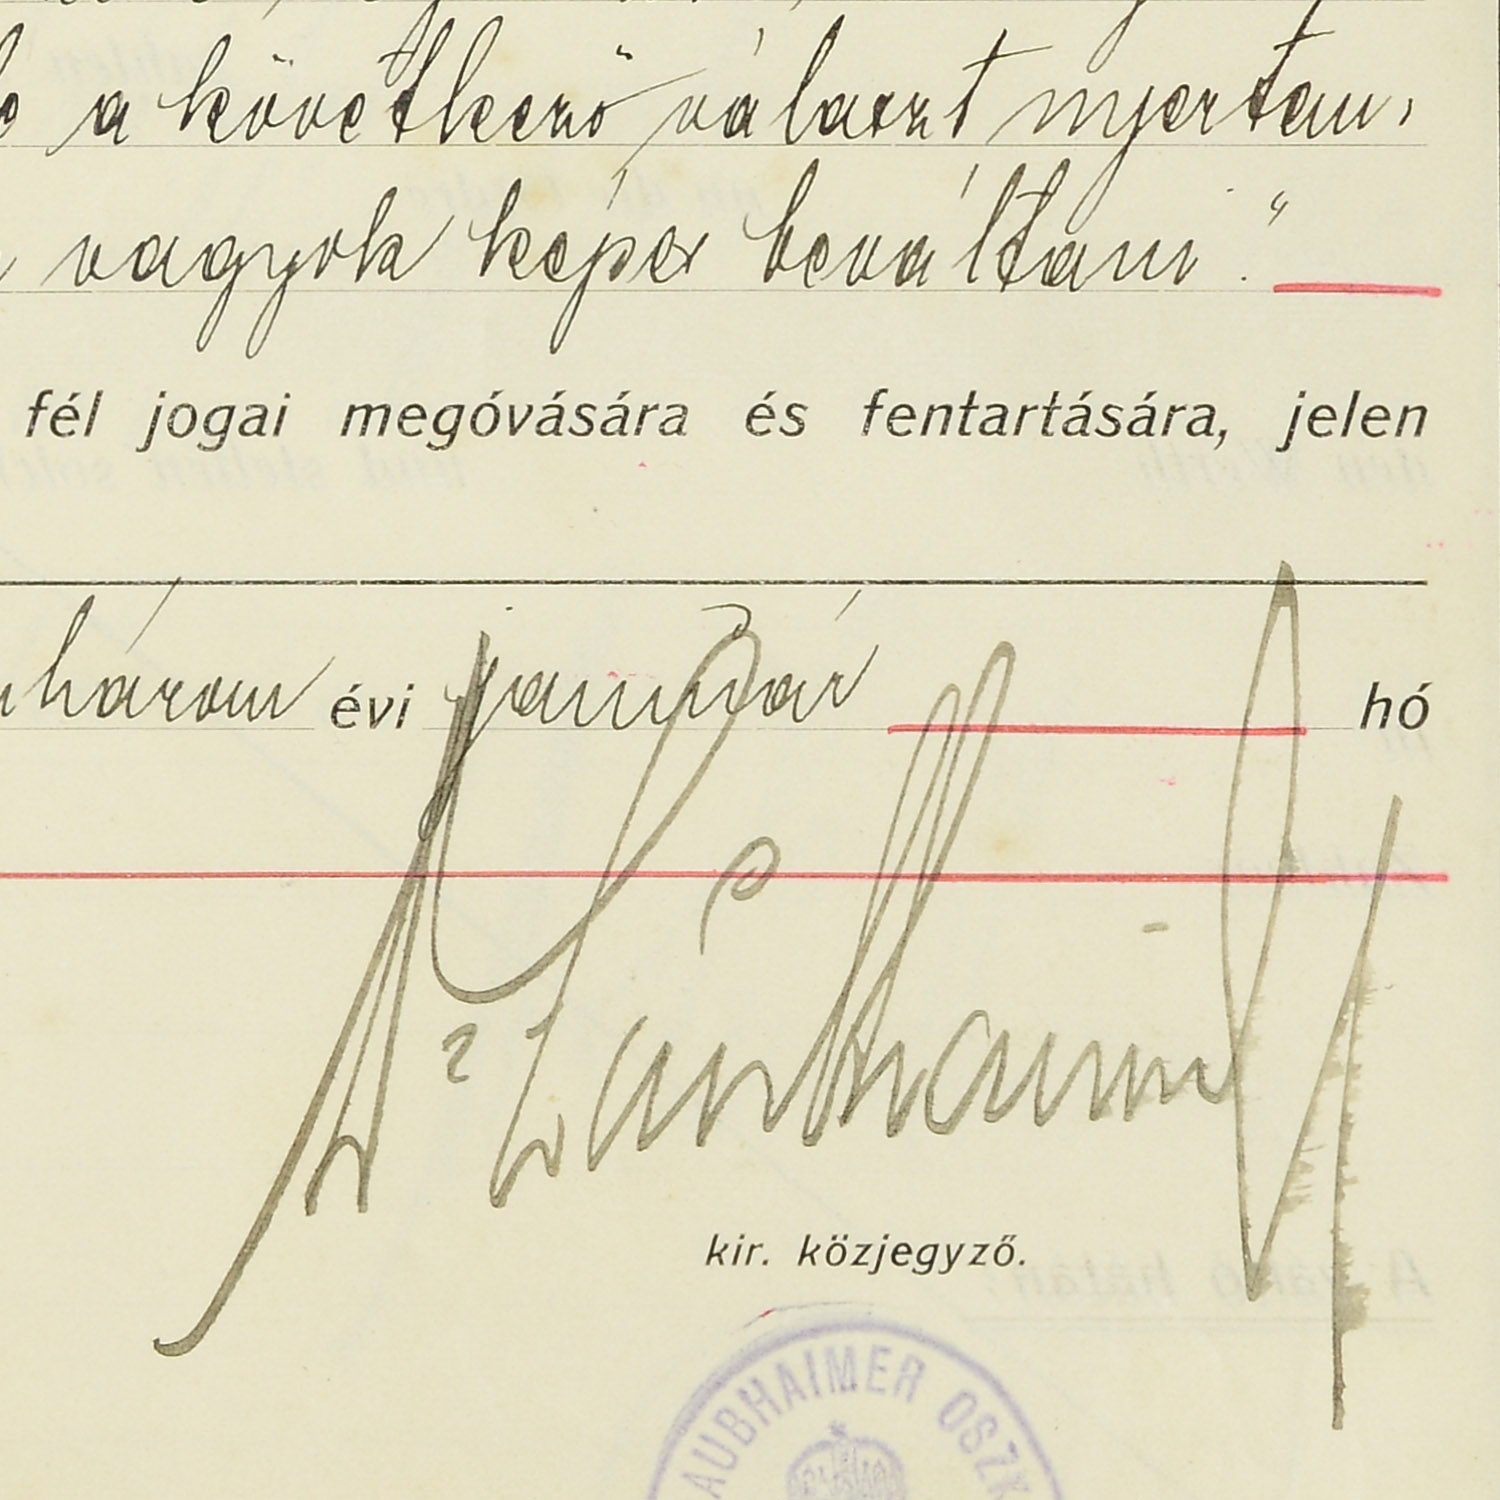 a következő választ nyertem,
vagyok képes beváltani."
fél jogai megóvására és fentartására, jelen
három évi január hó
kir. közjegyző.
AUBHAIMER OSZK